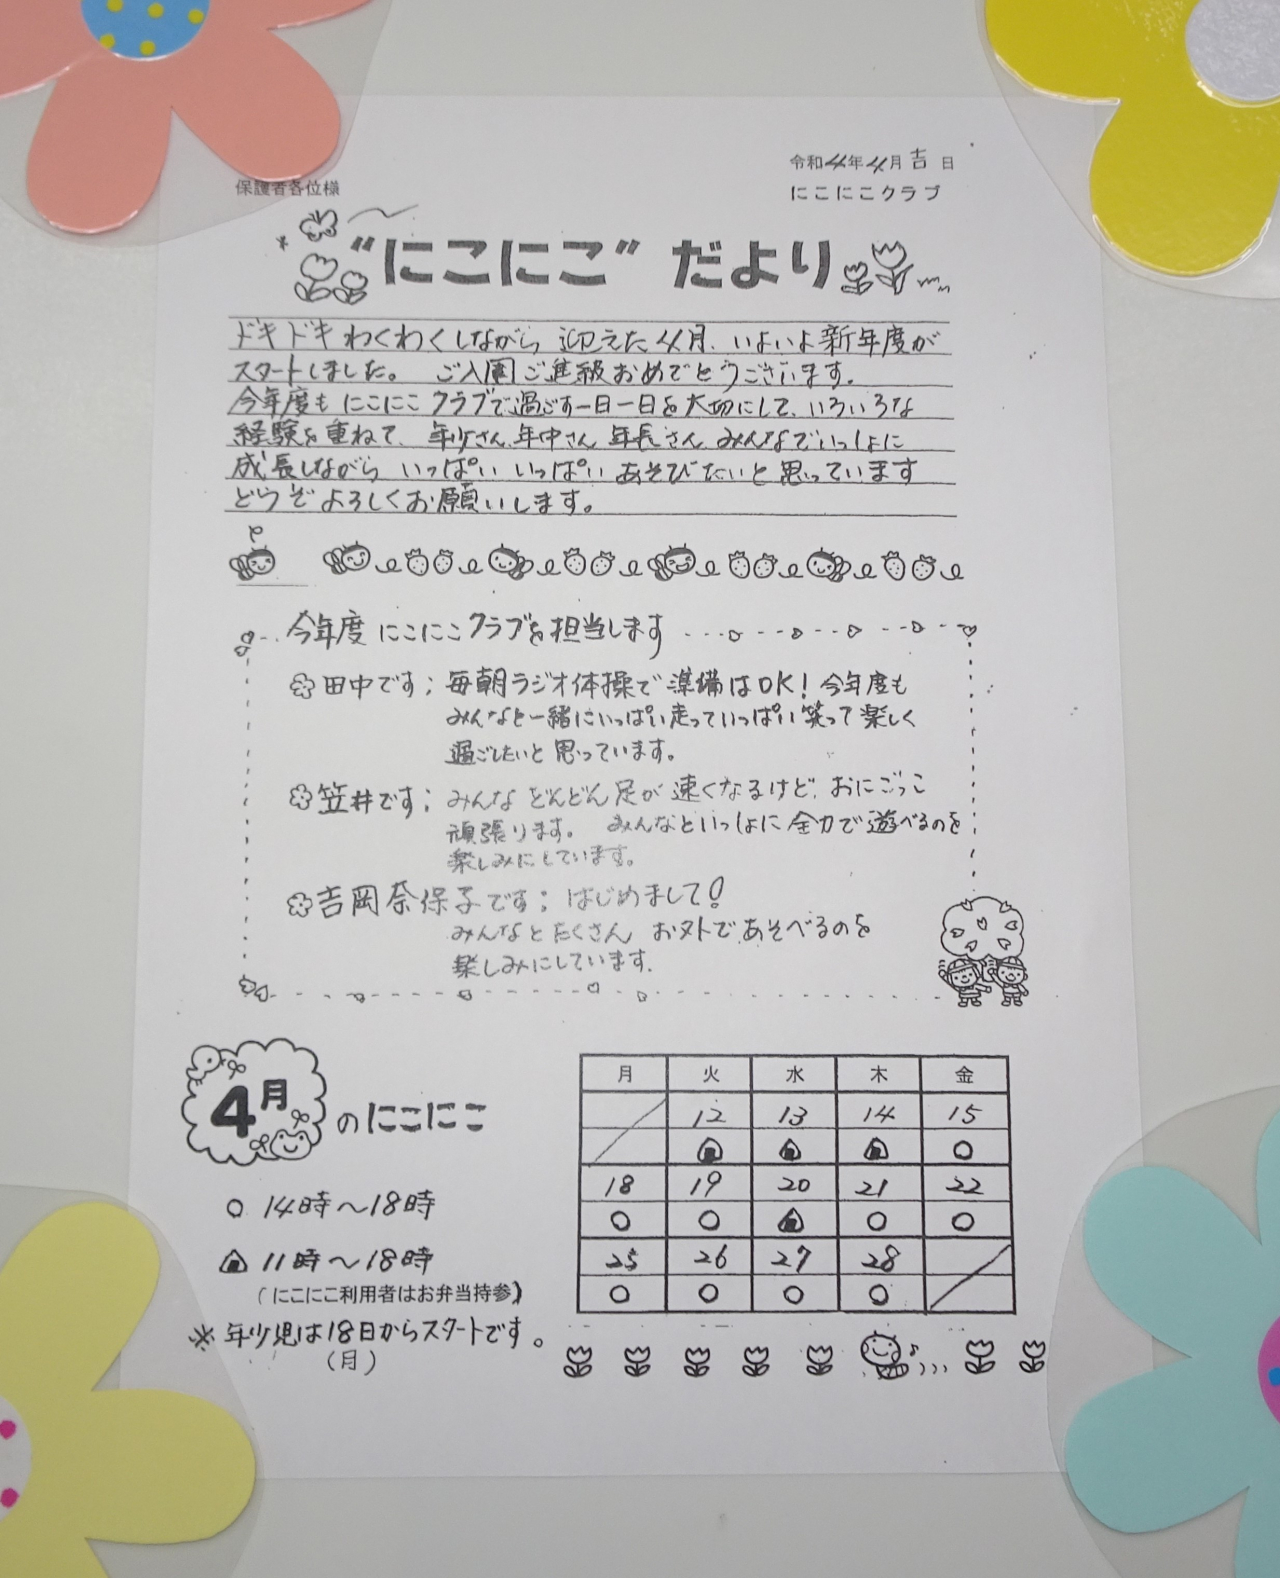 令和4年4月吉日
保護者各位様
にこにこクラブ
"にこにこ" だより
ドキドキわくわくしながら 迎えた4月、いよいよ新年度が
スタートしました。 ご入園ご進級おめでとうございます。
今年度も にこにこクラブで過ごす一日一日を大切にして、いろいろな
経験を重ねて、年少さん、年中さん、年長さん、みんなでいっしょに
成長しながら いっぱい いっぱい あそびたいと思っています
どうぞよろしくお願いします。
今年度 にこにこクラブを担当します
田中です; 毎朝ラジオ体操で準備はOK! 今年度も
みんなと一緒にいっぱい走っていっぱい笑って楽しく
過ごしたいと思っています。
笠井です; みんな どんどん足が速くなるけど、おにごっこ
頑張ります。 みんなといっしょに全力で遊べるのを
楽しみにしています。
吉岡奈保子です; はじめまして!
みんなとたくさん お外であそべるのを
楽しみにしています。
4月のにこにこ
月 火 水 木 金
12 13 14 15
○
18 19 20 21 22
○ ○ ○ ○
25 26 27 28
○ ○ ○ ○
○ 14時〜18時
11時〜18時
(にこにこ利用者はお弁当持参)
※年少児は18日からスタートです。
(月)